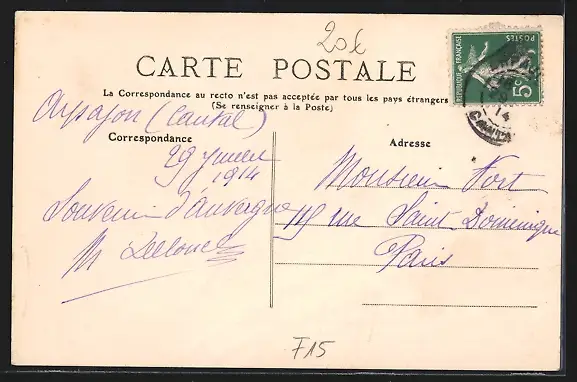 20€
CARTE POSTALE
La Correspondance au recto n'est pas acceptée par tous les pays étrangers
(Se renseigner à la Poste)
Arpajon (Cantal)
Correspondance
29 janvier
1914
Souvenir d'auvergne
M
Adresse
Monsieur Fort
119 rue Saint Dominique
Paris
REPUBLIQUE FRANÇAISE
POSTES
5c
14
F15